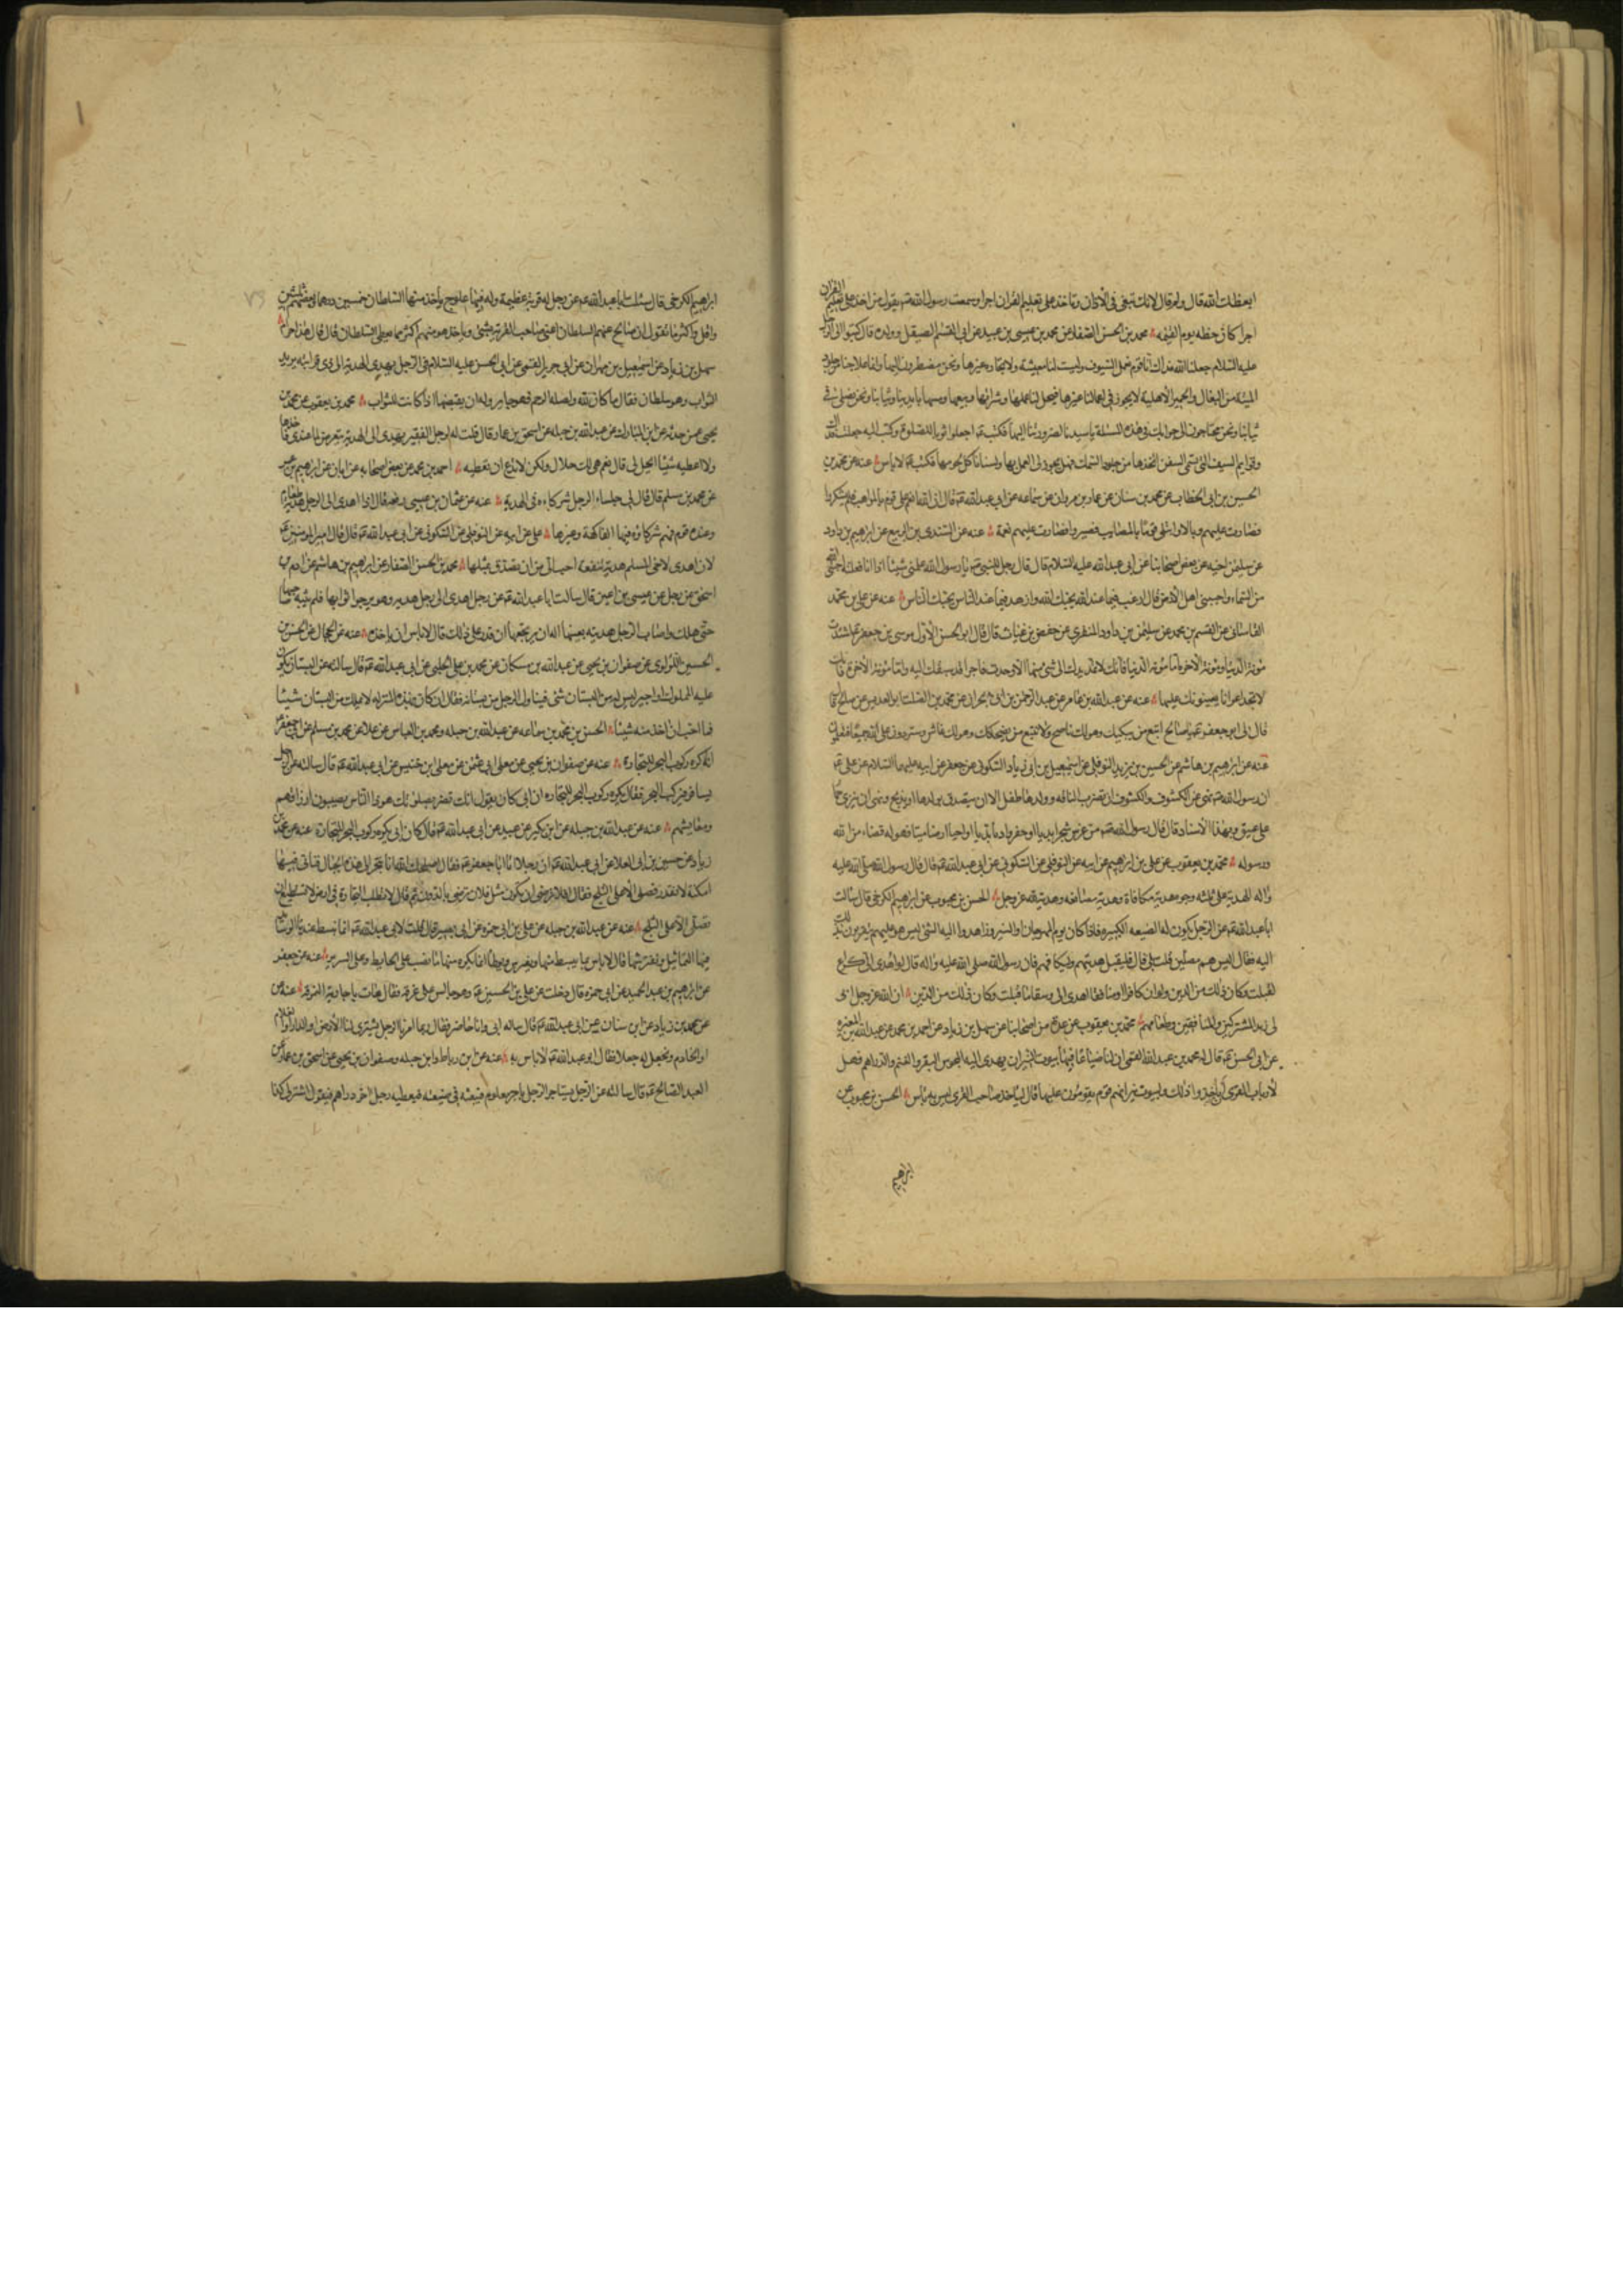 ابغضك الله قال ولم قال لانك تبغى فى الاذان وتاخذ على تعليم القران اجرا وسمعت رسول الله يقول من اخذ على تعليم القران
اجرا كان حظه يوم القيمة محمد بن الحسن الصفار عن محمد بن عيسى بن عبيد عن ابى القسم الصيقل وولده قال كتبوا الى الرجل
عليه السلام جعلنا الله فداك انا قوم نعمل السيوف وليست لنا معيشة ولا تجارة غيرها ونحن مضطرون اليها وانما علاجنا من جلود
الميتة من البغال والحمير الاهلية لا يجوز فى اعمالنا غيرها فيحل لنا عملها وشرائها وبيعها ومسها بايدينا وثيابنا ونحن نصلى فى
ثيابنا ونحن محتاجون الى جوابك فى هذه المسئلة يا سيدنا لضرورتنا اليها فكتب اجعلوا ثوبا للصلوة وكتب اليه جعلت فداك
وقوايم السيف التى تسمى السفن اتخذها من جلود السمك فهل يجوز لى العمل بها ولسنا ناكل لحومها فكتب لا باس عنه عن محمد بن
الحسين بن ابى الخطاب عن محمد بن سنان عن عمار بن مروان عن سماعه عن ابى عبد الله قال ان الله انعم على قوم بالمواهب فلم يشكروا
فصارت عليهم وبالا وابتلى قوما بالمصايب فصبروا فصارت عليهم نعمة عنه عن السندى بن الربيع عن ابراهيم بن داود
عن سليمن اخيه عن بعض اصحابنا عن ابى عبد الله عليه السلام قال قال رجل للنبى يا رسول الله علمنى شيئا اذا انا فعلته احبنى الله
من السماء واحبنى اهل الارض قال ارغب فيما عند الله يحبك الله وازهد فيما عند الناس يحبك الناس عنه عن على بن محمد
القاسانى عن القسم بن محمد عن سليمن بن داود المنقرى عن حفص بن غياث قال قال ابو الحسن الاول موسى بن جعفر اشتدت
مؤنة الدنيا ومؤنة الاخرة اما مؤنة الدنيا فانك لا تمد يدك الى شئ منها الا وجدت فاجرا قد سبقك اليه واما مؤنة الاخرة فانك
لا تجد اعوانا يعينونك عليها عنه عن عبد الله بن عامر عن عبد الرحمن بن ابى نجران عن محمد بن الصلت
قال لى ابو جعفر يا صالح اتبع من يبكيك وهو لك ناصح ولا تتبع من يضحكك وهو لك غاش وستردون على الله جميعا فتعلمون
عنه عن ابراهيم بن هاشم عن الحسين بن يزيد النوفلى عن اسمعيل بن ابى زياد السكونى عن جعفر عن ابيه عليهما السلام عن على
ان رسول الله نهى عن الكشوف والكشوف ان تضرب الناقه وولدها طفل الا ان يتصدق بولدها او يذبح ونهى ان ينزى حمار
على عتيق وبهذا الاسناد قال قال رسول الله من غرس شجرا بديا او حفر واديا بديا او احيا ارضا ميتا فهو له قضاء من الله
ورسوله محمد بن يعقوب عن على بن ابراهيم عن ابيه عن النوفلى عن السكونى عن ابى عبد الله قال قال رسول الله صلى الله عليه
واله الهدية على ثلثه وجوه هدية مكافاة وهدية مصانعه وهدية لله عز وجل الحسن بن محبوب عن ابراهيم الكرخى قال سالت
ابا عبد الله عن الرجل يكون له الضيعه الكبيره فاذا كان يوم المهرجان او النيروز اهدوا اليه الشئ ليس هو عليهم يتقربون بذلك
اليه فقال اليس هم مصلين قلت بلى قال فليقبل هديتهم وليكافهم فان رسول الله صلى الله عليه واله قال لو اهدى الى كراع
لقبلت وكان ذلك من الدين ولو ان كافرا او منافقا اهدى الى وسقا ما قبلت وكان ذلك من الدين ان الله عز وجل ابى
لى زبد المشركين والمنافقين وطعامهم محمد بن يعقوب عن عدة من اصحابنا عن سهل بن زياد عن احمد بن محمد عن عبد الله بن المغيرة
عن ابى الحسن قال له محمد بن عبد الله القمى ان لنا ضياعا فيها بيوت النيران يهدى اليه المجوس البقر والغنم والدراهم فهل
لارباب القرى ان ياخذوا ذلك ولبيوت نيرانهم قوم يقومون عليها قال لياخذه صاحب القرى ليس به باس الحسن بن محبوب عن
ابراهيم
ابراهيم الكرخى قال سئلت ابا عبد الله عن رجل له قرية عظيمة وله فيها علوج ياخذ منها السلطان خمسين درهما وبعضهم ثلثين
واقل واكثر ما تقول ان صالح عنهم السلطان اعنى صاحب القرية بشئ وياخذ هو منهم اكثر مما يعطى السلطان قال قال هذا حرام
سهل بن زياد عن اسمعيل بن مهران عن ابى جرير القمى عن ابى الحسن عليه السلام فى الرجل يهدى الهدية الى ذى قرابته يريد
الثواب وهو سلطان فقال ما كان لله ولصلة الرحم فهو جايز وله ان يقبضها اذا كانت للثواب محمد بن يعقوب عن محمد بن
يحيى عمن حدثه عن ابن المبارك عن عبد الله بن جبله عن اسحق بن عمار قال قلت له الرجل الفقير يهدى الى الهدية يتعرض لما عندى فاخذها
ولا اعطيه شيئا ايحل لى قال نعم هى لك حلال ولكن لا تدع ان تعطيه احمد بن محمد عن بعض اصحابه عن ابان عن ابراهيم بن عمر
عن محمد بن مسلم قال قال لى جلساء الرجل شركاءه فى الهدية عنه عن عثمان بن عيسى رفعه قال اذا اهدى الى الرجل هدية طعام
وعنده قوم فهم شركاؤه فيها الفاكهة وغيرها على عن ابيه عن النوفلى عن السكونى عن ابى عبد الله قال قال امير المومنين
لان اهدى لاخى المسلم هدية تنفعه احب الى من ان اتصدق بمثلها محمد بن الحسن الصفار عن ابراهيم بن هاشم عن ادم بن
اسحق عن رجل عن عيسى بن اعين قال سالت ابا عبد الله عن رجل اهدى الى رجل هديه وهو يرجوا ثوابها فلم يثبه صاحبها
حتى هلك واصاب الرجل هديته بعينها اله ان يرتجعها ان قدر على ذلك قال لا باس ان ياخذه
الحسين اللؤلؤى عن صفوان بن يحيى عن عبد الله بن مسكان عن محمد بن على الحلبى عن ابى عبد الله قال سالته عن البستان يكون
عليه المملوك او اجير ليس له من البستان شئ فيتناول الرجل من بستانه فقال ان كان بهذه المنزله لا يملك من البستان شيئا
فما احب ان اخذ منه شيئا الحسن بن محمد بن سماعه عن عبد الله بن جبله ومحمد بن العباس عن علا عن محمد بن مسلم عن ابى جعفر
انه كره ركوب البحر للتجارة عنه عن صفوان بن يحيى عن معلى ابى عثمن عن معلى بن خنيس عن ابى عبد الله قال سالته عن الرجل
يسافر فيركب البحر فقال يكره ركوب البحر للتجاره ان ابى كان يقول انك تضر بصلوتك هو ذا الناس يصيبون ارزاقهم
ومعايشهم عنه عن عبد الله بن جبله عن ابن بكير عن عبيد عن ابى عبد الله قال كان ابى يكره ركوب البحر للتجارة عنه عن محمد بن
زياد عن حسين بن ابى العلا عن ابى عبد الله ان رجلا اتا ابا جعفر فقال اصلحك الله انا نتجر الى هذه الجبال فناتى فيها
امكنة لا نقدر نصلى الا على الثلج فقال الا ترضى ان تكون مثل فلان يرضى بالدون ثم قال لا تطلب التجارة فى ارض لا تستطيع ان
تصلى الا على الثلج عنه عن عبد الله بن جبله عن على بن ابى حمزه عن ابى بصير قال قلت لابى عبد الله انا نبسط عندنا الوسايد
فيها التماثيل ونفترشها قال لا باس بما يبسط منها ويفترش ويوطا انما يكره منها ما نصب على الحايط وعلى السرير عنه عن جعفر
عن ابراهيم بن عبد الحميد عن ابى حمزه قال دخلت عن على بن الحسين وهو جالس على نمرقه فقال هات يا جارية النمرقة عنه عن
عن محمد بن زياد عن ابن سنان عن ابى عبد الله قال ساله ابى وانا حاضر فقال ربما امرنا الرجل يشترى لنا الارض او الدار او الغلام
او الخادم ونجعل له جعلا فقال ابو عبد الله لا باس به عنه عن ابن رباط وابن جبله وصفوان بن يحيى عن اسحق بن عمار عن
العبد الصالح قال سالته عن الرجل يستاجر الرجل باجر معلوم فيبعثه فى ضيعته فيعطيه رجل اخر دراهم فيقول اشتر لى كذا